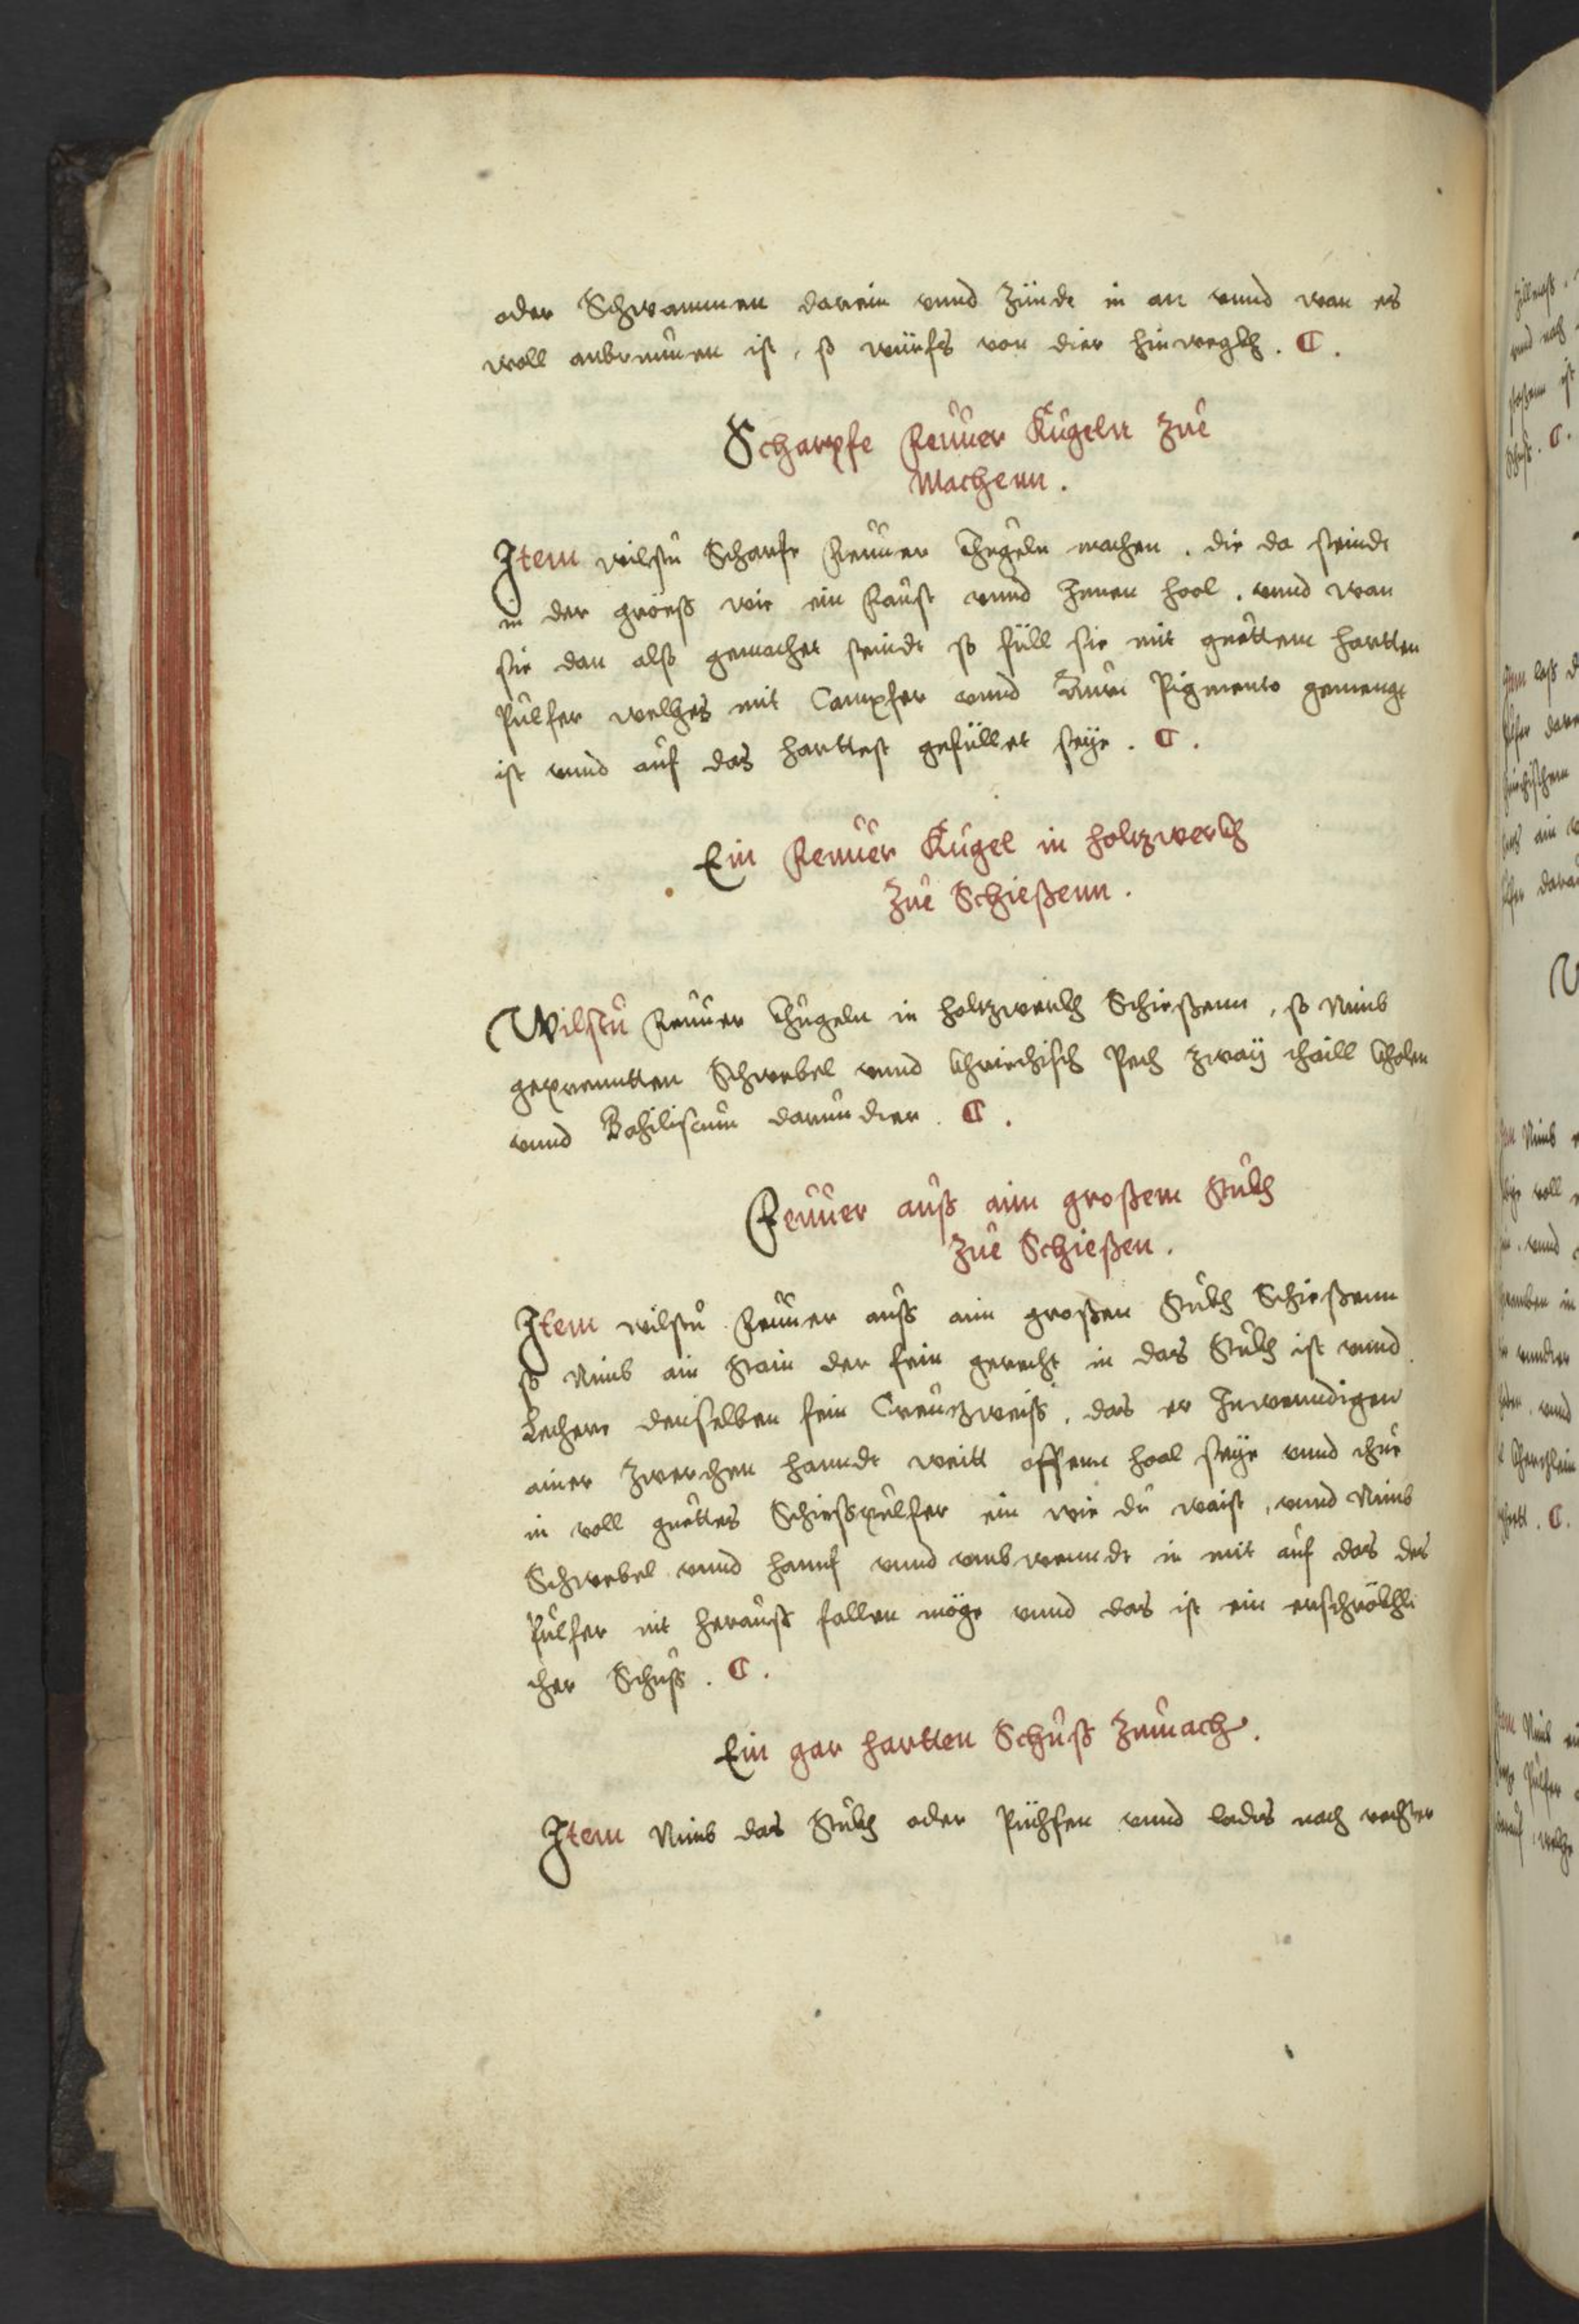 oder Schwammen darein vnnd Zünde in an vnnd wan es
woll anbrunnen ist, so würfs von dier hinwegkh. C.
Scharpfe Feuuer Kugeln Zue
Machenn.
Item wilstu Scharfe Feuuer Khugeln machen. die da seindt
in der größ wie ein Faust vnnd Innen hool. vnnd wan
sie dan alß gemachet seindt so füll sie mit guettem hartten
Pulfer welches mit Campfer vnnd Auri Pigmento gemengt
ist vnnd auf das harttest gefüllet seye. C.
Ein Feuuer Kugel in holtzwerkh
Zue Schießenn.
Wilstu Feuuer Khugeln in holtzwerkh Schießenn, so Nimb
geprenntten Schwebel vnnd Khriechisch Pech zway thaill Kholen
vnnd Basiliscum darundter. C.
Feuuer auß aim großem Stukh
Zue Schießen.
Item wilstu Feuuer auß aim großen Stukh Schießenn
so Nimb ain Stain der fein gerecht in das Stukh ist vnnd
Lechere denselben fein Creutzweiß, das er Inwenndigen
ainer zwerchen hanndt weitt offenn hool seye vnnd thue
in voll guettes Schießpulfer ein wie du waist, vnnd Nimb
Schwebel vnnd hanf vnnd vmbwenndt in mit auf das des
Pulfer nit herauß fallen möge vnnd das ist ein erschrökhli
cher Schuß. C.
Ein gar hartten Schuß Zumach.
Item Nimb das Stukh oder Püchsen vnnd lades nach rechter